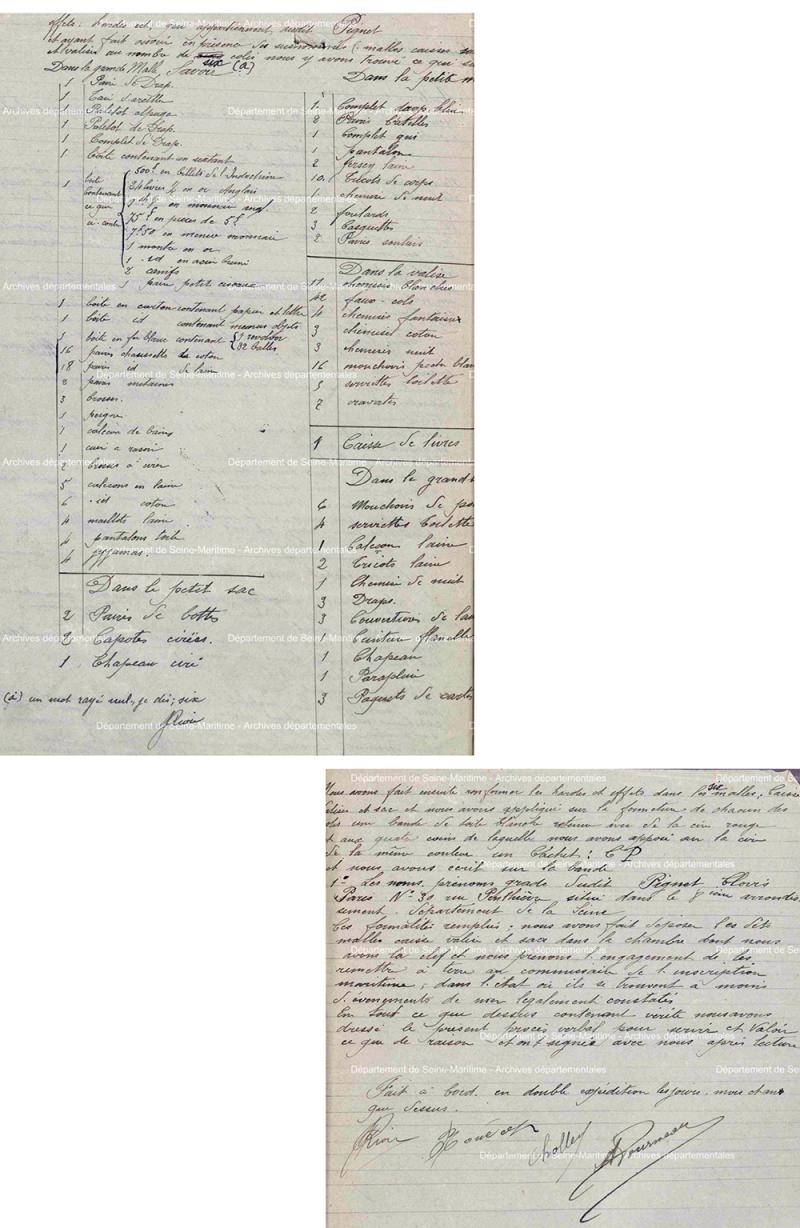 effets, hardes ect, qui appartiennent audit Pignet
et ayant fait ouvrir en présence des susnommés : malles caisses
et valises au nombre de six colis nous y avons trouvé ce qui
Dans la grande Malle, Savoir (a)
1 Paire de Drap.
1
1 Paletot alpaga
1 Paletot de Drap.
1 Complet de Drap.
1 boîte contenant un sextant
1 boîte contenant ce que ci-contre
500f en billets de l'Indochine
34 livres ½ en or Anglais
en monnaie ang.
75f en pièces de 5f
7f50 en menue monnaie
1 montre en or
1 - id - en acier bruni
2 canifs
1 paire petit ciseaux
1 boîte en carton contenant papier et lettre
1 boîte id contenant menus objets
1 boîte en fer blanc contenant 1 revolver
32 balles
16 paires chaussettes de coton
18 paires id de laine
2 paires mitaines
3 brosses
1 peigne
1 caleçon de bains
1 cuir a rasoir
2 brosses à cirer
5 caleçons en laine
6 - id - coton
4 maillots laine
4 pantalons toile
4 pyjamas.
Dans le petit sac
2 Paires de bottes
2 Capotes cirées.
1 Chapeau ciré
(a) un mot rayé nul, je dis; six
Rion
Dans la petite m
1 Complet drap bleu
2 Paires bretelles
1 Complet gris
1 pantalon
2 Jersey laine
10 Tricots de corps
1 chemise de nuit
2 foulards
3 Casquettes
2 Paires souliers
Dans la valise
11 chemises blanches
42 faux-cols
4 chemises fantaisie
3 chemises coton
3 chemises nuit
16 mouchoirs poche blan
5 serviettes toilette
2 cravates
1 Caisse de livres
Dans le grand s
6 Mouchoirs de po
4 serviettes toilette
1 Caleçon laine
2 Tricots laine
1 Chemise de nuit
3 Draps.
3 Couvertures de lai
1 Ceinture flanelle
1 Chapeau
1 Parapluie
3 Paquets de cartes
Département de Seine-Maritime - Archives départementales
Nous avons fait ensuite renfermer les hardes et effets dans les dites malles, Caisse
valise et sac et nous avons appliqué sur la fermeture de chacun des
colis une bande de toile blanche retenue avec de la cire rouge
et aux quatre coins de laquelle nous avons apposé sur la cire
de la même couleur un Cachet : CP
et nous avons écrit sur la bande
1º Les noms, prénoms grade dudit Pignet Clovis
Paris Nº 30 rue Penthièvre situé dans le 8ième arrondis
sement. Département de la Seine
Ces formalités remplies : nous avons fait déposer les dits
malles caisse valise et sacs dans la chambre dont nous
avons la clef et nous prenons l'engagement de les
remettre à terre au commissaire de l'inscription
maritime, dans l'état où ils se trouvent à moins
d'évènements de mer légalement constatés
En tout ce que dessus contenant vérité nous avons
dressé le présent procès verbal pour servir et Valoir
ce que de raison et ont signés avec nous après lecture
Fait à bord en double expédition les jours, mois et an
que dessus.
Rion